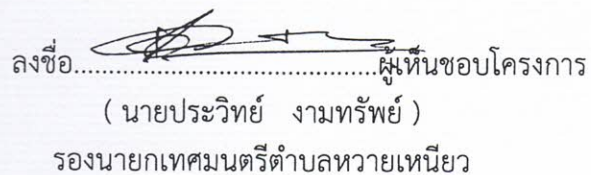 ลงชื่อ......................................ผู้เห็นชอบโครงการ
( นายประวิทย์ งามทรัพย์ )
รองนายกเทศมนตรีตำบลหวายเหนียว